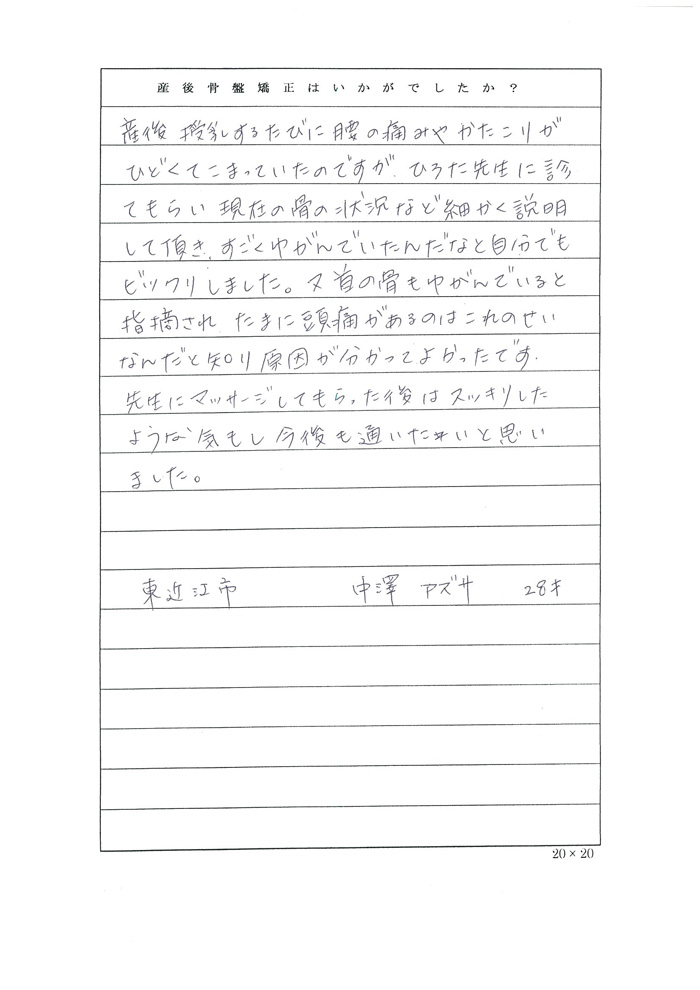 産後骨盤矯正はいかがでしたか？
産後 授乳するたびに腰の痛みやかたこりが
ひどくてこまっていたのですが、ひろた先生に診
てもらい 現在の骨の状況など細かく説明
して頂き、すごくゆがんでいたんだなと自分でも
ビックリしました。又首の骨もゆがんでいると
指摘され たまに頭痛があるのはこれのせい
なんだと知り原因が分かってよかったです.
先生にマッサージしてもらった後はスッキリした
ような気もし 今後も通いたいと思い
ました。
東近江市 中澤 アズサ 28才
20×20